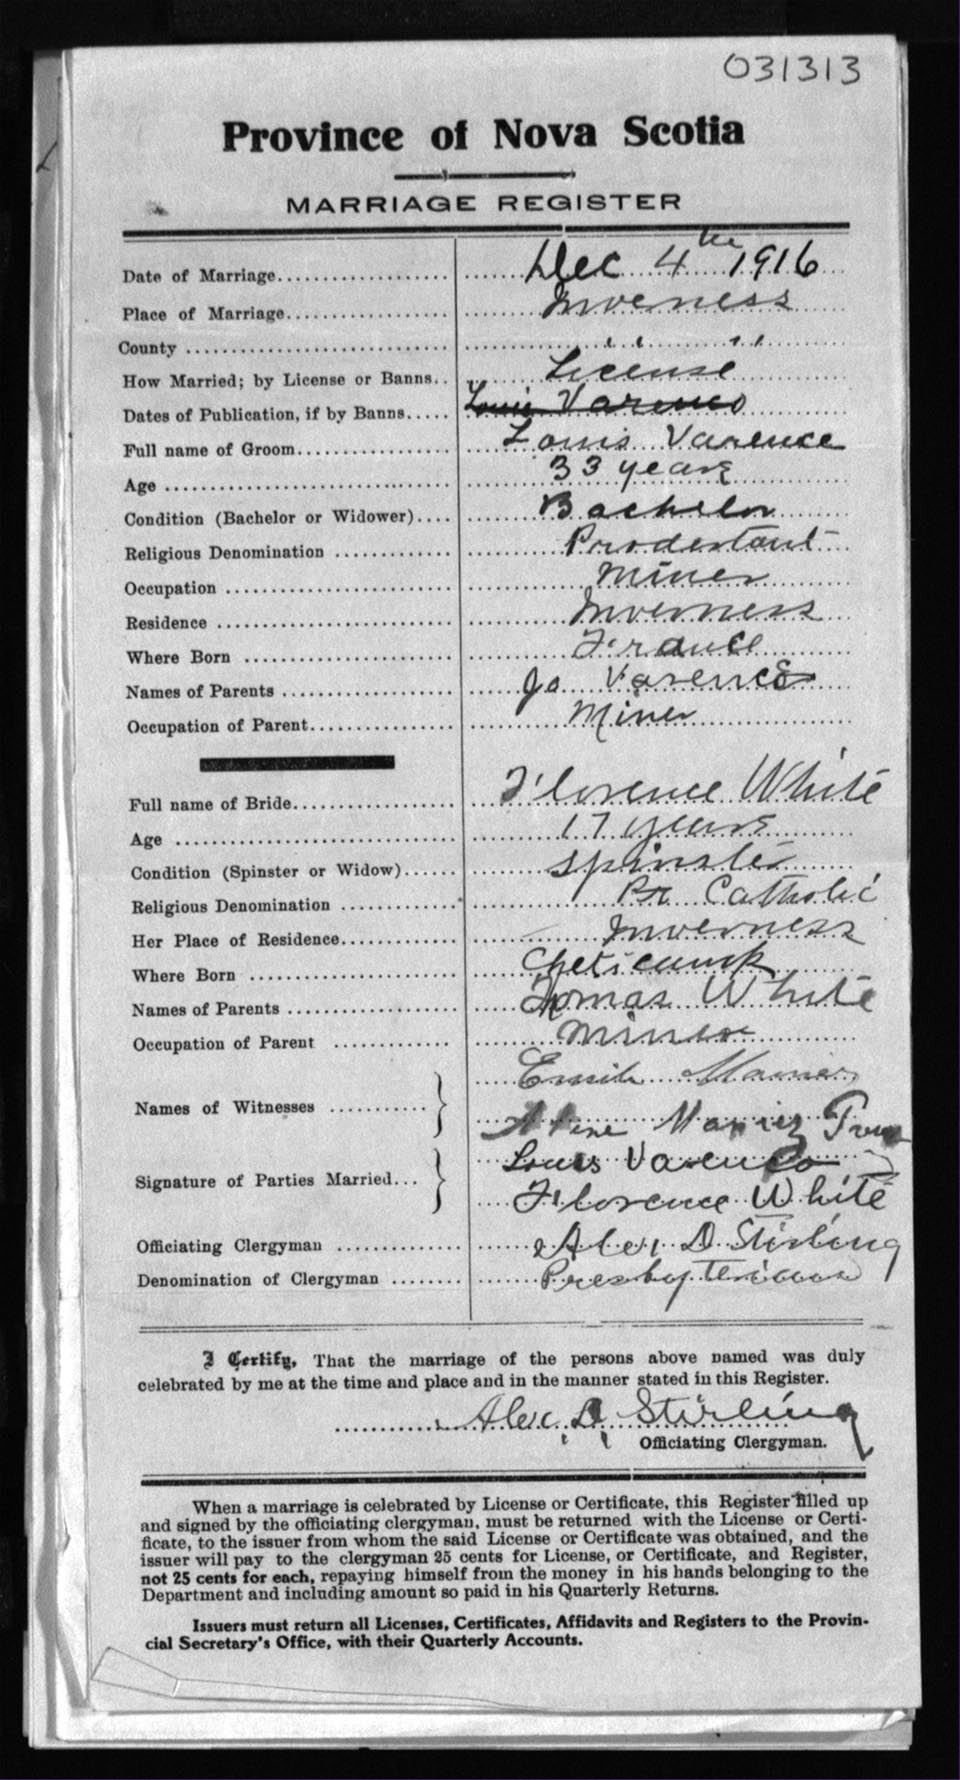 031313
Province of Nova Scotia
MARRIAGE REGISTER
Date of Marriage.................... Dec 4th 1916
Place of Marriage.................. Inverness
County .............................. " "
How Married; by License or Banns.. License
Dates of Publication, if by Banns..... Louis Varenco
Full name of Groom.................. Louis Varence
Age .................................. 33 years
Condition (Bachelor or Widower).... Bachelor
Religious Denomination ............. Prodestant
Occupation .......................... Miner
Residence ........................... Inverness
Where Born ......................... France
Names of Parents .................... Jo Varence
Occupation of Parent................. Miner
Full name of Bride................... Florence White
Age .................................. 17 years
Condition (Spinster or Widow)...... Spinster
Religious Denomination ............. Catholic
Her Place of Residence.............. Inverness
Where Born ......................... Cheticamp
Names of Parents .................... Thomas White
Occupation of Parent ............... Miner
Names of Witnesses ........... Emile
Signature of Parties Married... Louis Varenco
Florence White
Officiating Clergyman ............... Alex D Stirling
Denomination of Clergyman ........ Presbyterian
I Certify, That the marriage of the persons above named was duly
celebrated by me at the time and place and in the manner stated in this Register.
Alex. D Stirling
Officiating Clergyman.
When a marriage is celebrated by License or Certificate, this Register filled up
and signed by the officiating clergyman, must be returned with the License or Certi-
ficate, to the issuer from whom the said License or Certificate was obtained, and the
issuer will pay to the clergyman 25 cents for License, or Certificate, and Register,
not 25 cents for each, repaying himself from the money in his hands belonging to the
Department and including amount so paid in his Quarterly Returns.
Issuers must return all Licenses, Certificates, Affidavits and Registers to the Provin-
cial Secretary's Office, with their Quarterly Accounts.